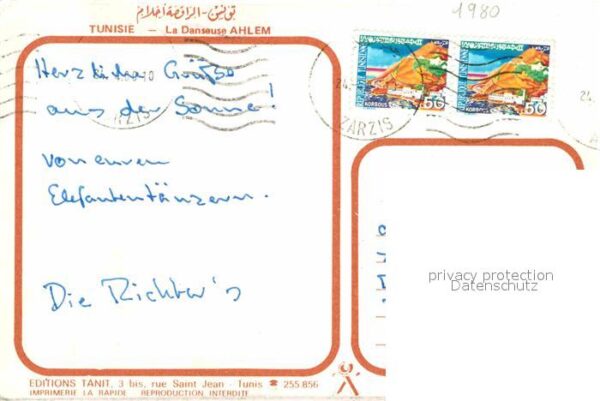 تونس - الراقصة أحلام
TUNISIE — La Danseuse AHLEM
1980
Herzlichen Grüsse
aus der Sonne!
von euren
Elefantentänzern.
Die Richter's
REPUBLIQUE TUNISIENNE
KORBOUS
50
REPUBLIQUE TUNISIENNE
KORBOUS
50
24.
ZARZIS
24.
privacy protection
Datenschutz
EDITIONS TANIT, 3 bis, rue Saint Jean - Tunis ☎ 255.856
IMPRIMERIE LA RAPIDE REPRODUCTION INTERDITE